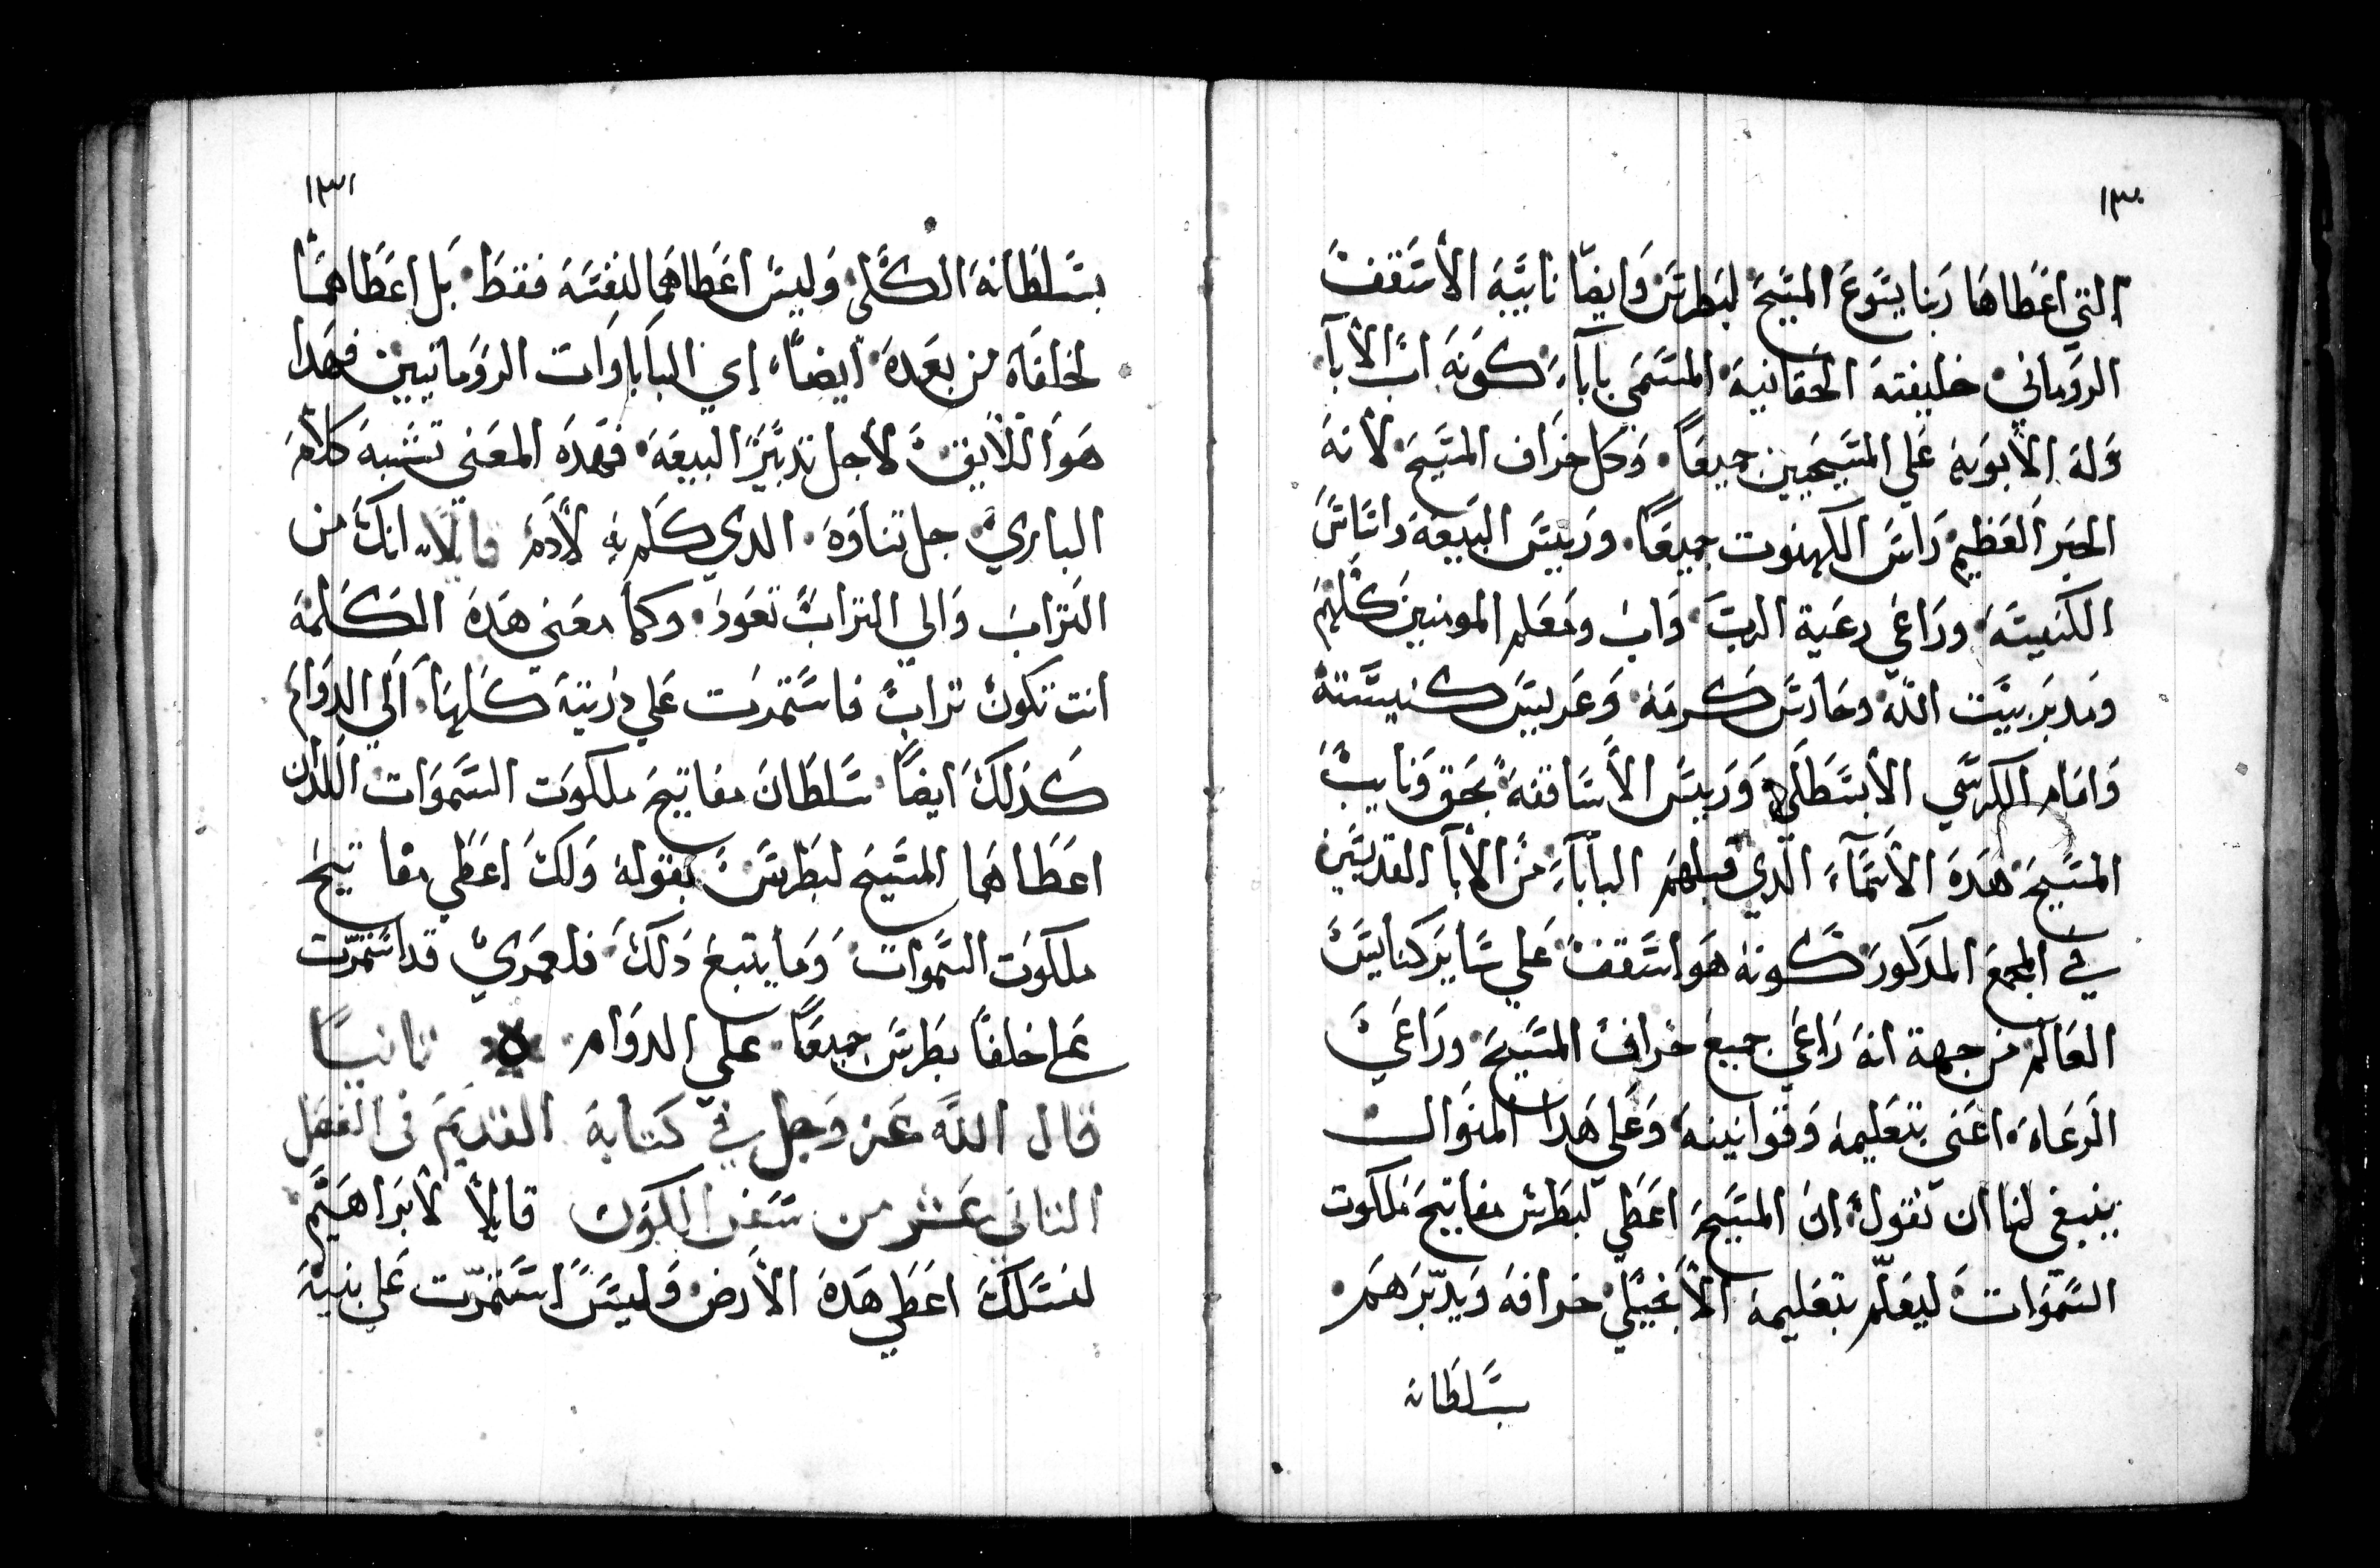 ١٣٠
التي اعَطاهَا رَبنا يسَوعَ المسَيحَ لبَطرسَ وَايضًا نايبَهَ الأسَقفَ
الروَماني خليفتهَ الحَقانيهَ المسَمَي باباءَ كوَنهَ ابَ الأبآ
وَلهَ الأبوَهَ عَلي المسَيحَيين جميعَاً وَكل خَرَاف المسَيحَ لأنهَ
الحَبر العَظيمَ رَاسَ الكهنوت جميعَاً ورَييسَ البَيعَهَ واسَاسَ
الكنَيسَهَ ورَاعَي رعَية الربَ وَابَ ومَعَلم المومنين كلهمَ
ومَدبرَ بيَت اللّه وحَارسَ كَرمَهَ وَعَريسَ كنيسَتهَ
وَامَام الكرسَي الأبسَطَلي وَرَييسَ الأسَاقفهَ بحَق وَنايبَ
المسَيحَ هَدَهَ الأسَمآءَ الدَي قبلهمَ البابآءَ مَن الأبآ القديسَين
في المجمعَ المدَكورَ كَونهَ هَوَ اسَقفَ عَلي سَايرَ كنايسَ
العَالمَ من جهة انهَ رَاعَي جميعَ خرافَ المسَيحَ ورَاعَيَ
الرَعَاهَ اعَني بتعَليمهَ وَقوانينهَ وَعَلي هَدا المنوَالَ
ينبغي لنا ان نقولَ ان المسَيحَ اعَطَي لبَطرسَ مفاتيحَ مَلكوت
السَموَات ليعَلّم بتعَليمهَ الأنجَيلي خَرافهَ وَيدّبرَهَمَ
بسَلطَانه
١٣١
بسَلطَانهَ الكلَي وَليسَ اعَطاهَما لنفسَهَ فقطَ بَل اعَطَاهَمَا
لخلفَاه من بعَدهَ ايضاً اي الباَباوَات الروَمانيين فهَدا
هَوَ اللأيقَ لأجل تدبيَرَ البيعَهَ فهَدَه المعَني تشَبهَ كلأمَ
الباريَ جل تناوَهَ الدي كلَم بهِ لأدَمَ قايلاً انكَ من
الترَابَ وَالي الترابَ تعَودَ وكما معَني هَدهَ الكَلمهَ
انت تكونَ ترابَ فاسَتمرَت عَلي دَريتهَ كَلهَا الَي الدوَامَ
كَدلكَ ايضاً سَلطَانَ مفاتيحَ ملكوَت السَموَات اللدَان
اعَطَاهَما المسَيحَ لبَطرسَ بقولهَ وَلكَ اعَطَي مفاتيحَ
ملكوَت السَموَات وَمَا يتبعَ دَلكَ فلعمَريَ قد استمرّت
عَلي خلفَا بطَرسَ جميعَاً علي الدوَام ٥ تانيًا
قال اللّه عَز وَجل في كتابهَ القديَمَ في الفصَل
التاني عَشَر من سَفر الكوَن قايلاً لأبرَاهَيَم
لنسَلكَ اعَطَي هَدهَ الأرضَ وَليسَ استمرّت عَلي بنيهَ